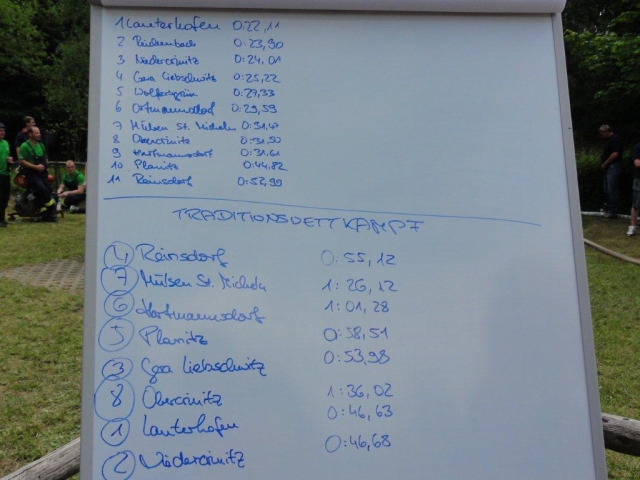 1 Lauterhofen 0:22,11
2 Reidenbach 0:23,90
3 Niedercrinitz 0:24,01
4 Gera Liebschwitz 0:25,22
5 Wolfersgrün 0:27,33
6 Ortmannsdorf 0:29,59
7 Mülsen St. Micheln 0:31,47
8 Obercrinitz 0:31,50
9 Hartmannsdorf 0:31,61
10 Planitz 0:44,82
11 Reinsdorf 0:52,99
TRADITIONSVETTKAMPF
4 Reinsdorf 0:55,12
7 Mülsen St. Micheln 1:26,12
6 Hartmannsdorf 1:01,28
5 Planitz 0:58,51
3 Gera Liebschwitz 0:53,98
8 Obercrinitz 1:36,02
1 Lauterhofen 0:46,63
2 Niedercrinitz 0:46,68